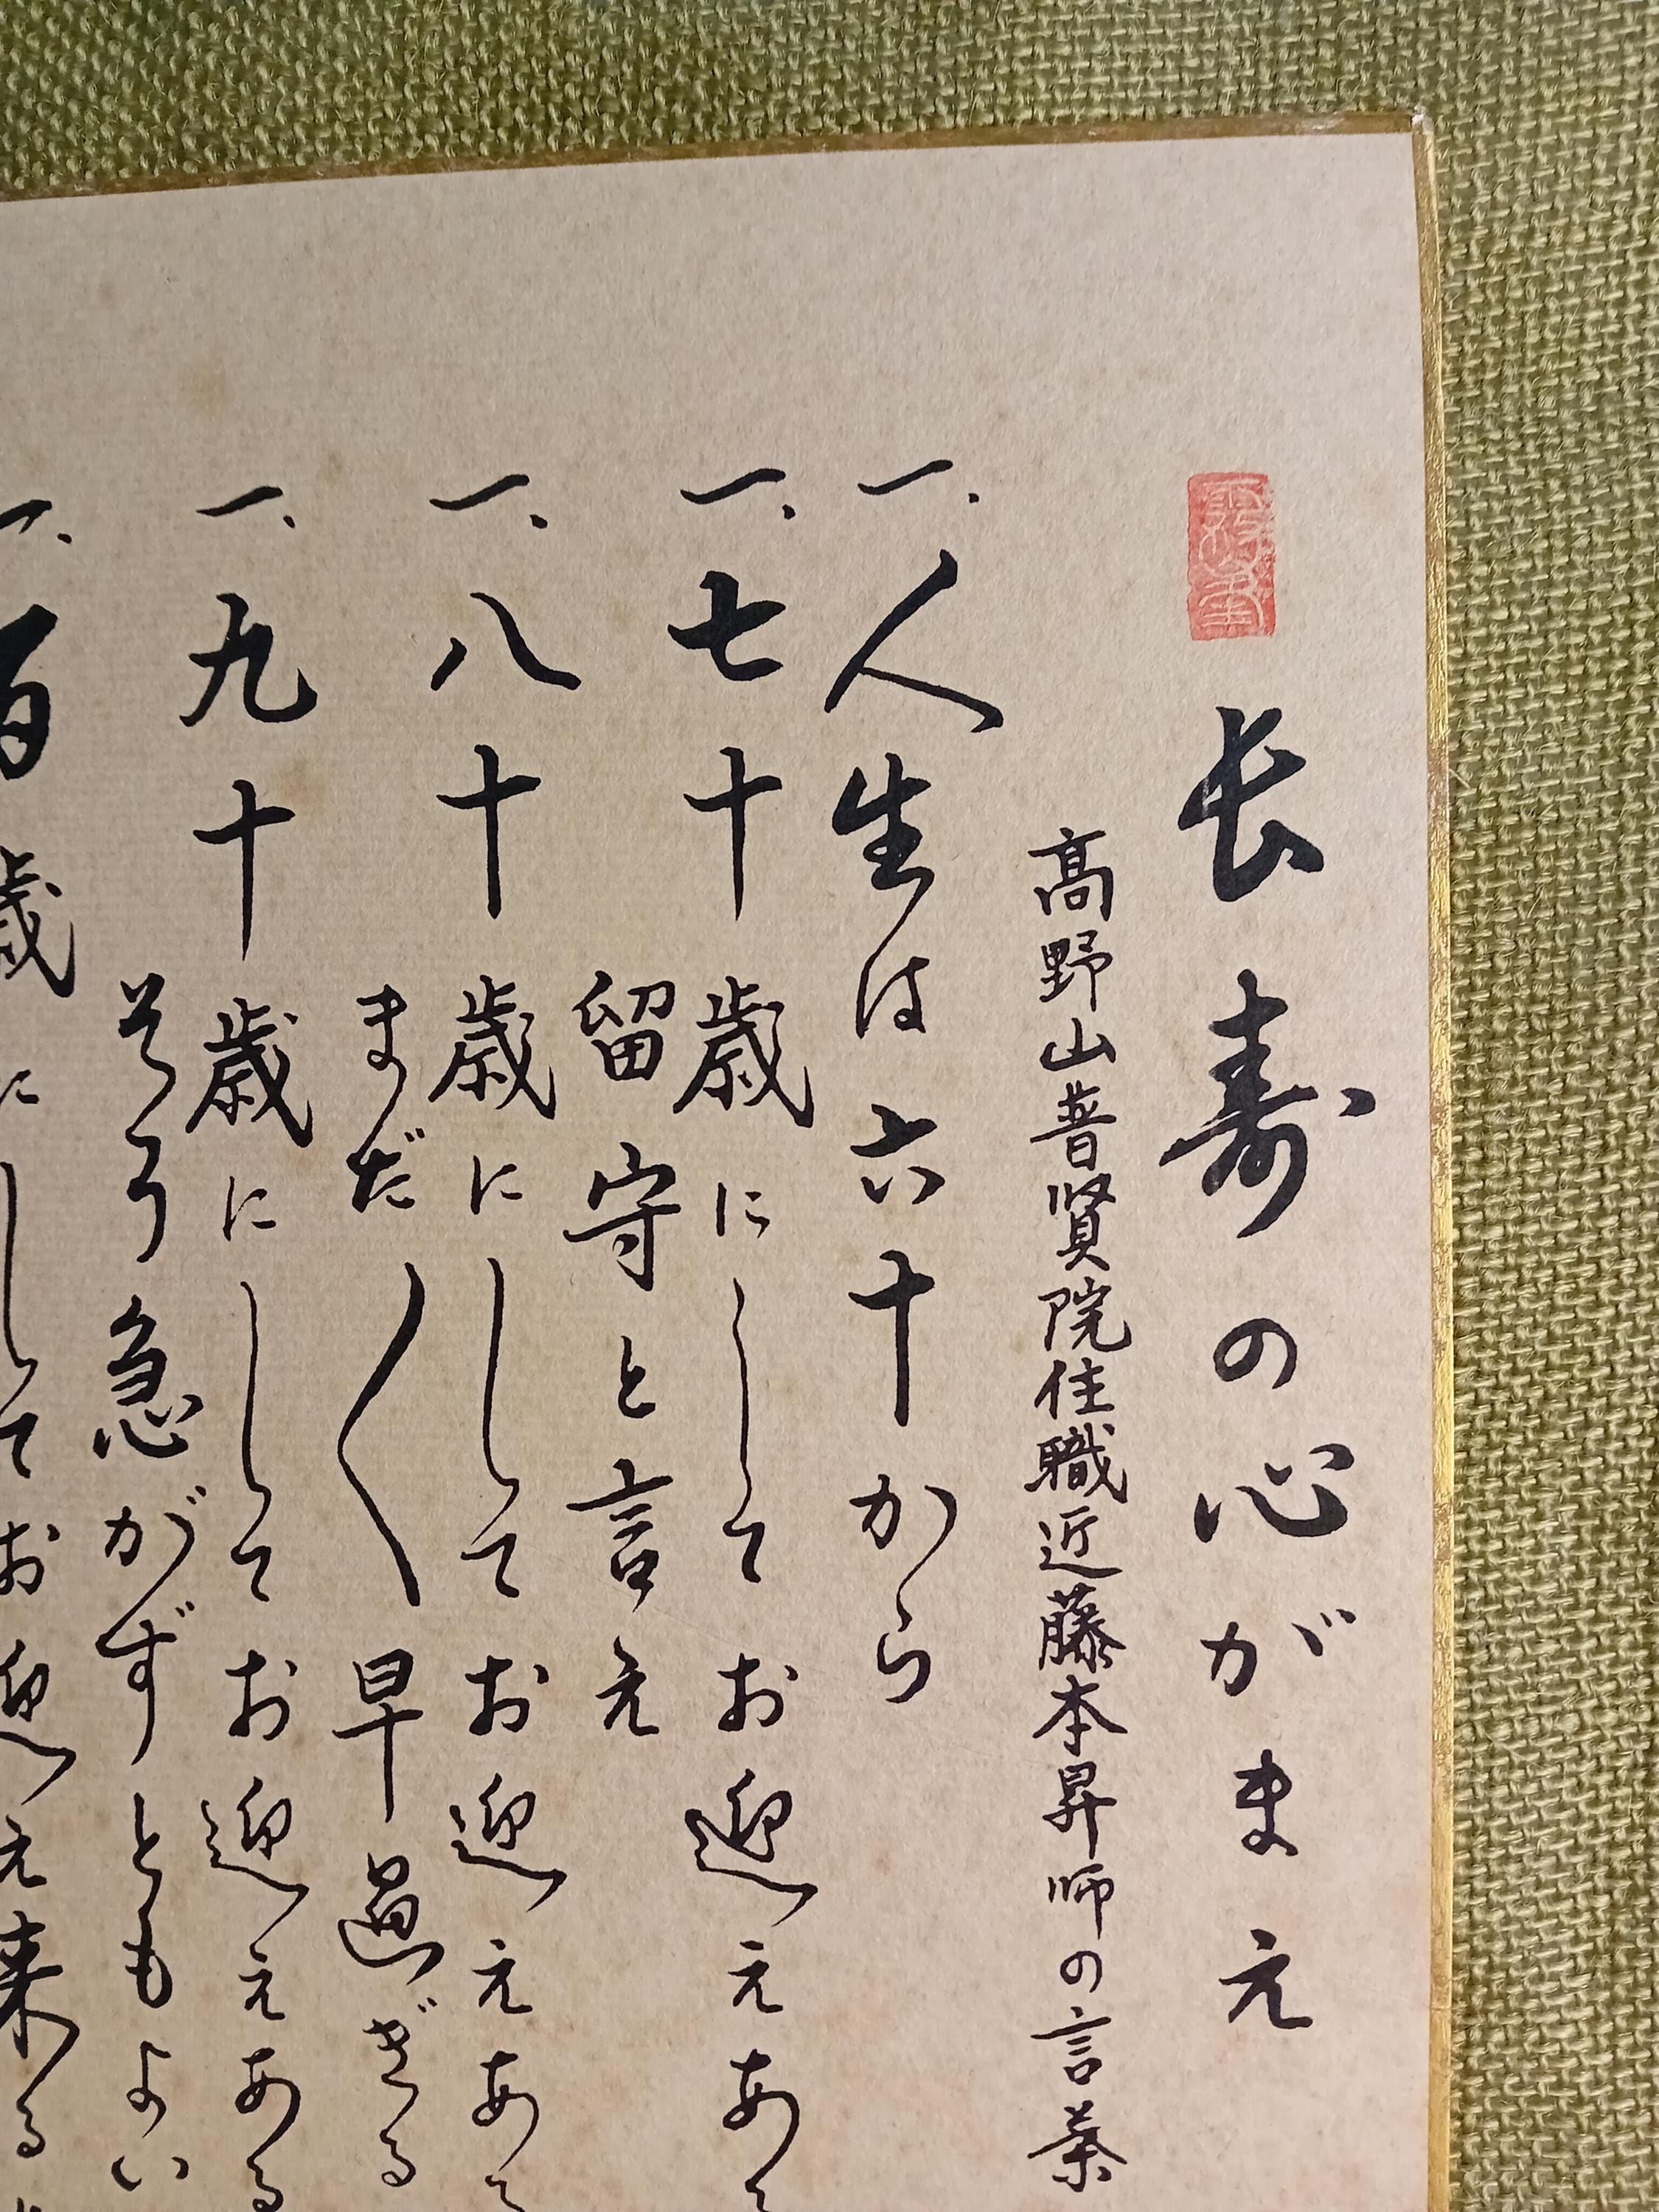 長寿の心がまえ
高野山普賢院住職近藤本昇師の言葉
一、人生は六十から
一、七十歳にしてお迎えあ
留守と言え
一、八十歳にしてお迎えあ
まだ〱早過ぎる
一、九十歳にしてお迎えある
そう急がずともよい
一、百歳にしてお迎え来る